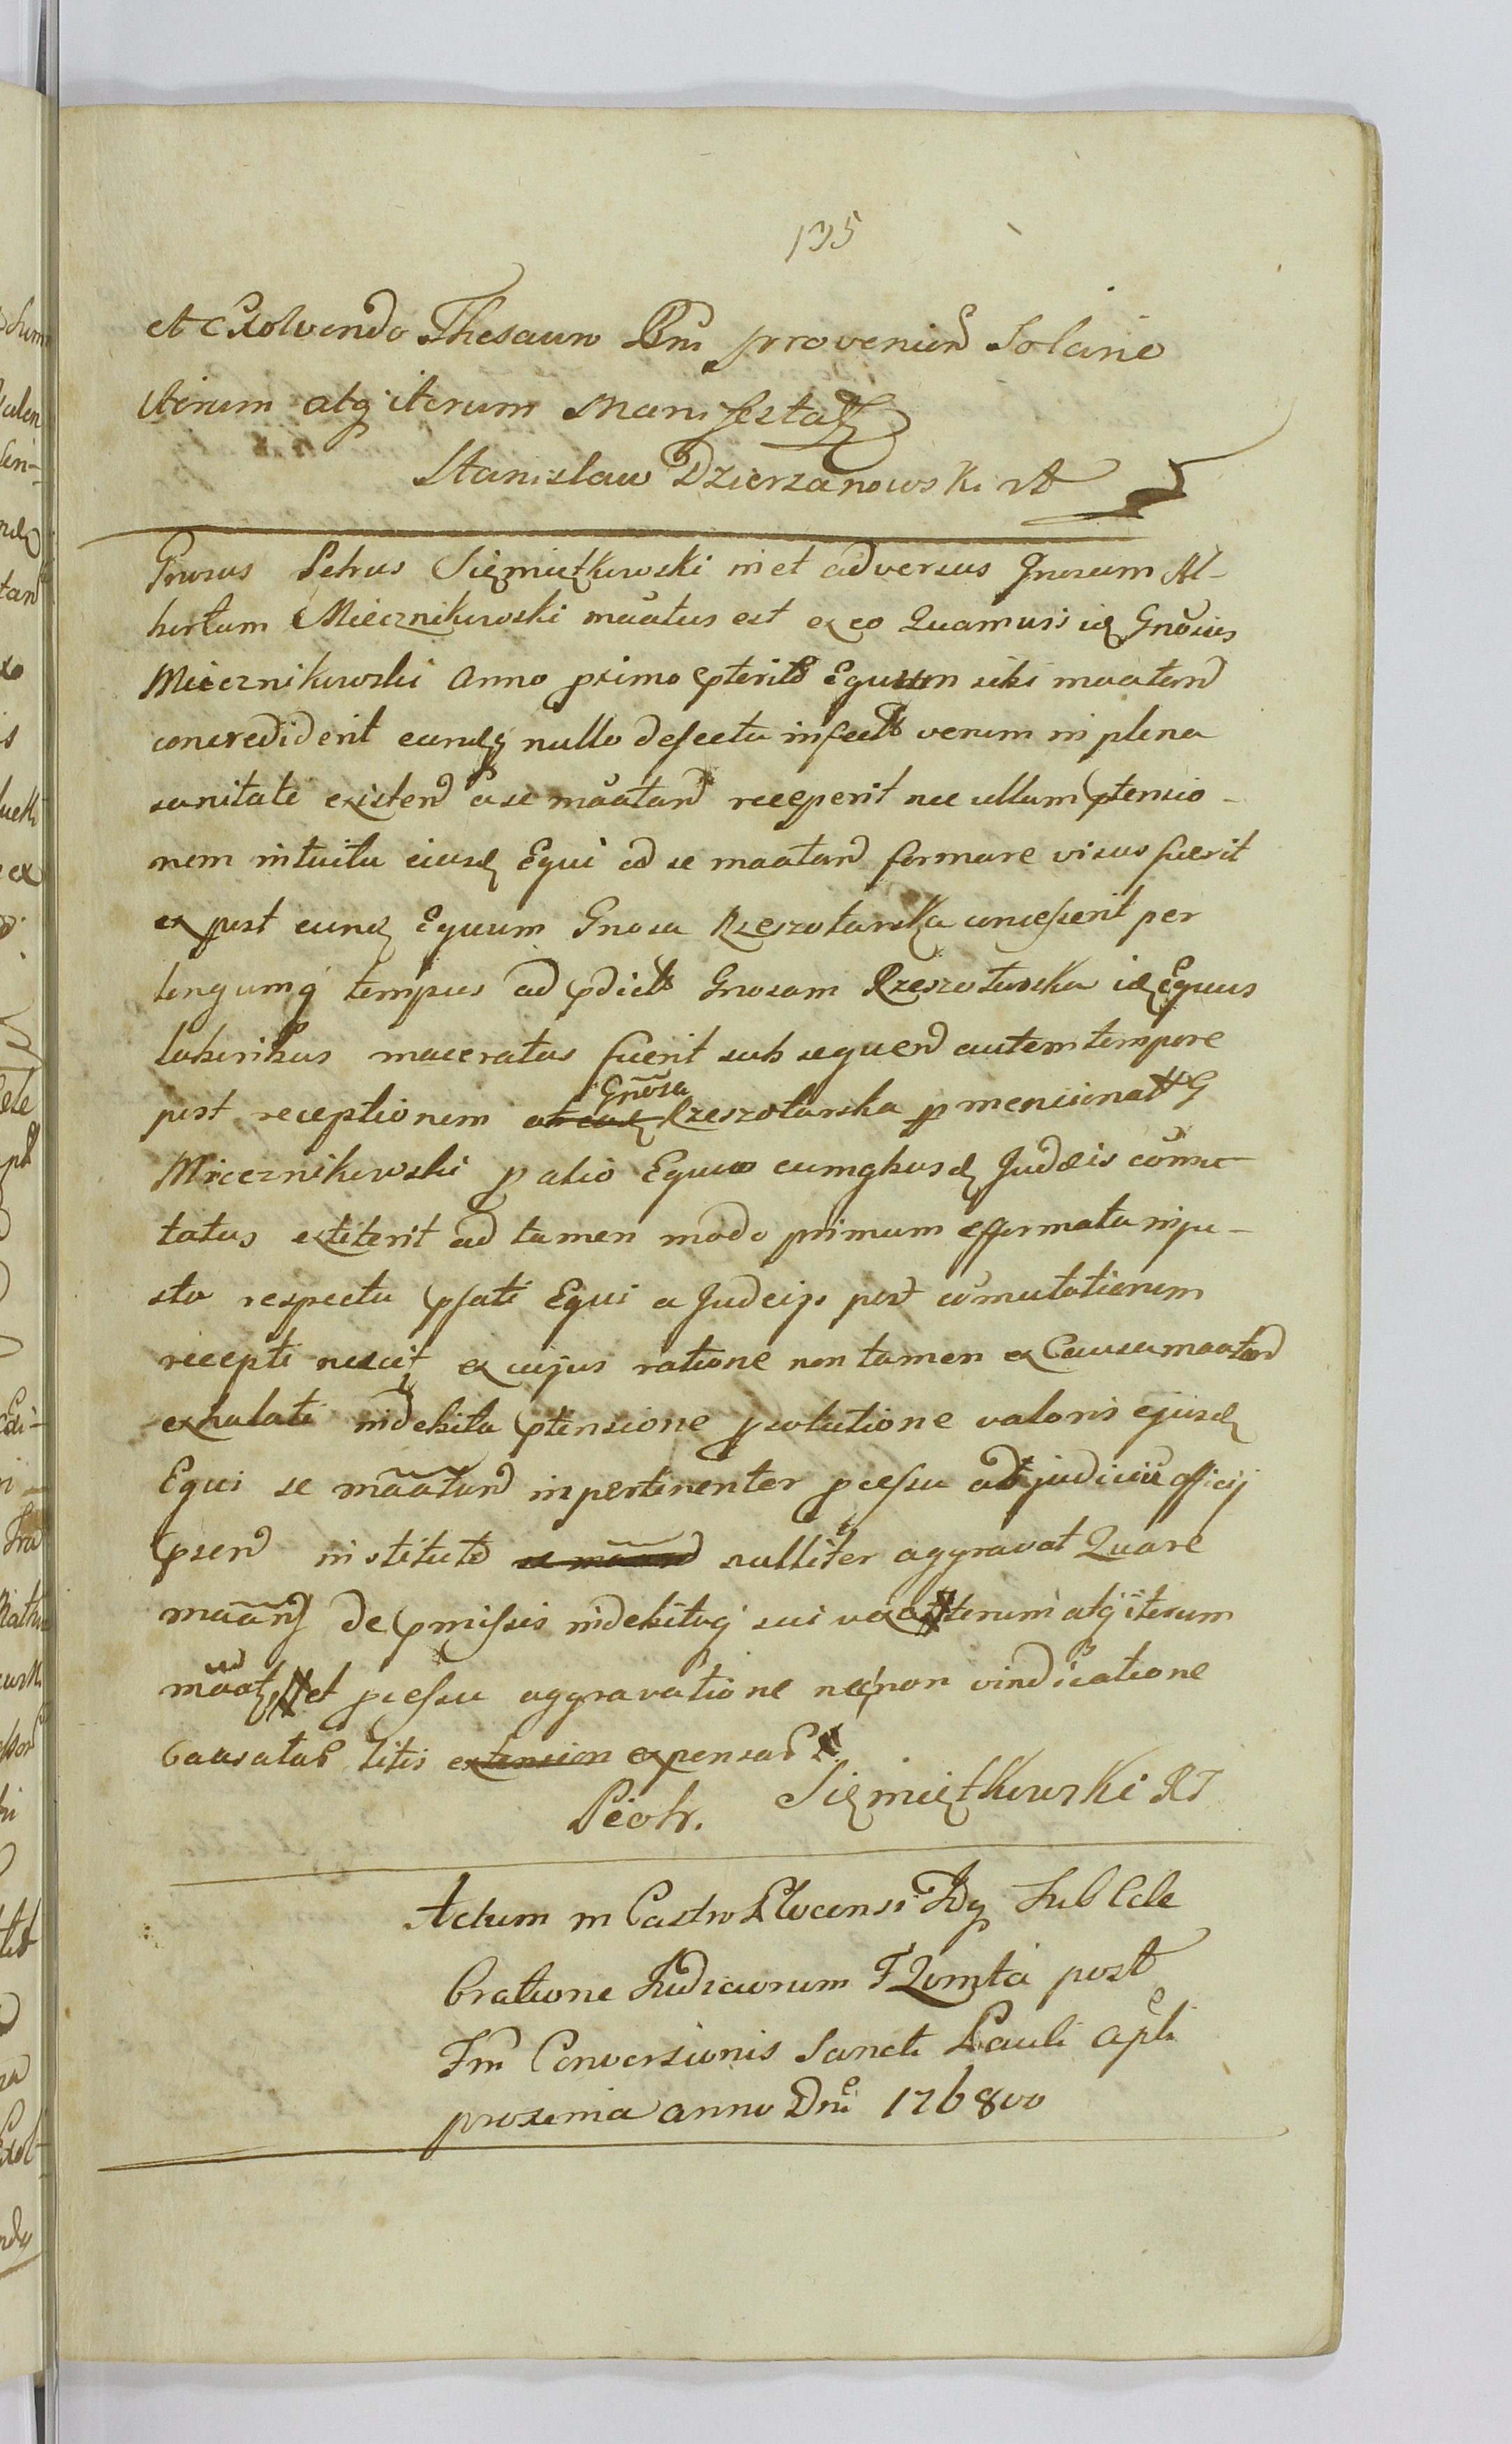 135
et Exolvendo Thesauro Rni provenien Solario
iterum atq iterum Manifestatt
Stanislaw Dzierzanowski
Gnosus Petrus Siemiętkowski in et adversus Gnosum Al-
bertum Miecznikowski mãatus est ex eo Quamvis idę Gnõsus
Miecznikowski Anno primo pterito Equum sibi maatand
concrediderit eundę nullo defectu infectt verum in plena
sanitate existend a se mãatand receperit nec ullam ptensio-
nem intuitu eiusdę Equi ad se maatand formare visus fuerit
ex post eundę Equum Gnosa Rzeszotarska concesserit per
longumq tempus ad pdictt Gnosam Rzeszotarska idę Equus
laboribus maceratus fuerit sub sequend autem tempore
post receptionem ab eadę Gnõsa Rzeszotarska p mencionatt G
Miecznikowski p alio Equo cumqbusdę Judeis cõmu-
tatus extiterit ad tamen modo primum efformata inju-
sta respectu pfati Equi a Judeijs post cõmutationem
recepti nescit ex cujus ratione non tamen ex Causa maatand
exhalati indebita ptensione p solutione valoris ejusdę
Equi se mãatand inpertinenter pcessu ad judiciũ officij
psend institute se mãand nulliter aggravat Quare
mãand de pmissis indebitaq sui iterum atq iterum
mãat et pcessu aggravatione necnon vindicatione
Causatar litis extension expensar
Piotr. Siemiętkowski
Actum in Castro Plocensi Rg Sub Cele
bratione Judiciorum F Quinta post
Fm Conversionis Sancti Pauli Apli
proxima anno Dni 1768vo